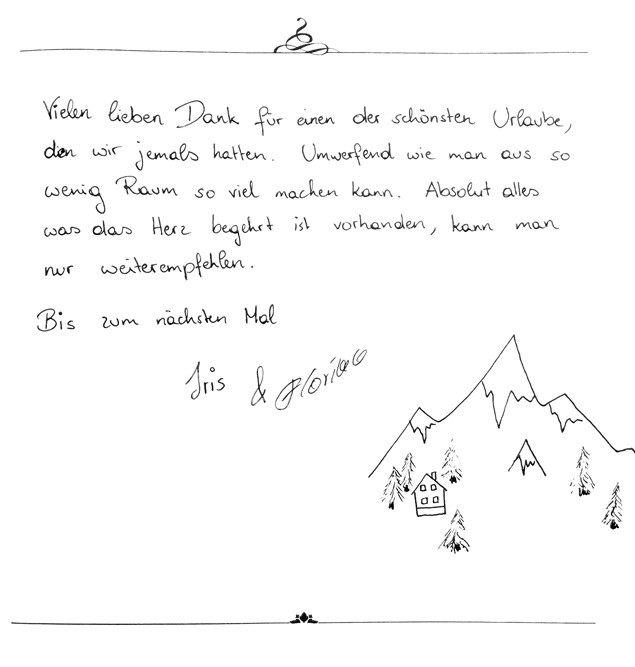 Vielen lieben Dank für einen der schönsten Urlaube,
den wir jemals hatten. Umwerfend wie man aus so
wenig Raum so viel machen kann. Absolut alles
was das Herz begehrt ist vorhanden, kann man
nur weiterempfehlen.
Bis zum nächsten Mal
Iris &